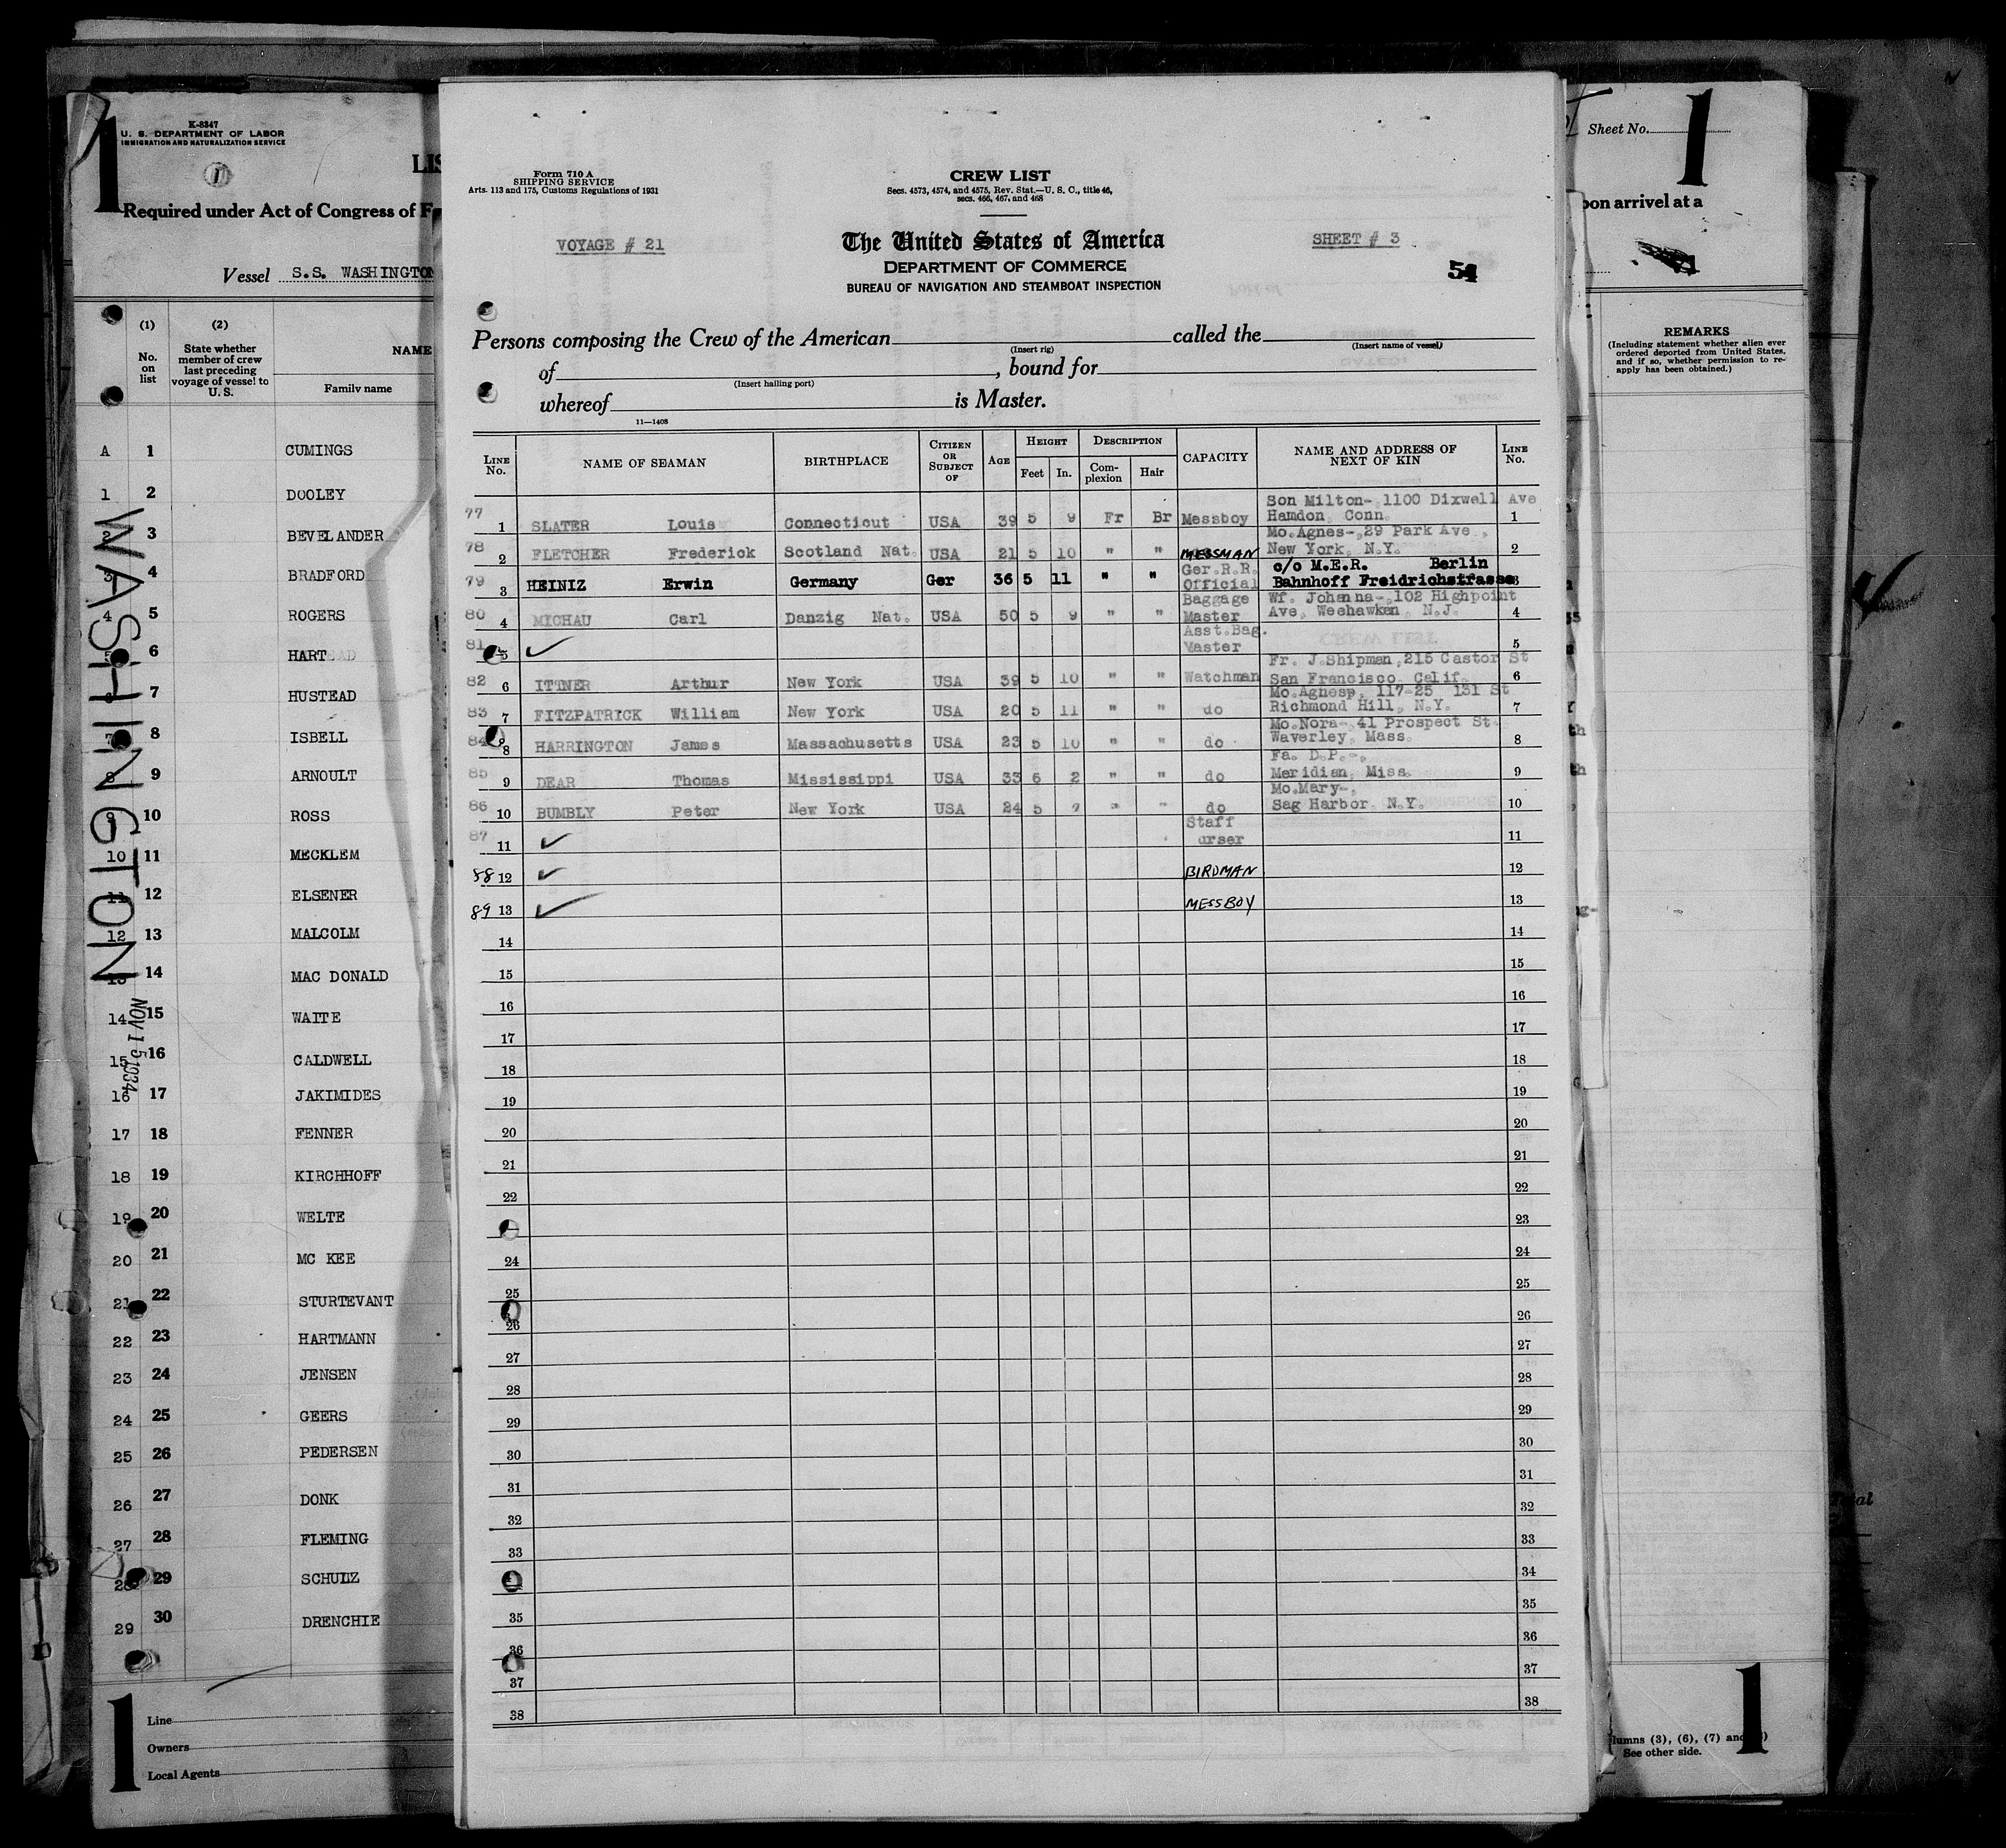 K-8347
U. S. DEPARTMENT OF LABOR
IMMIGRATION AND NATURALIZATION SERVICE
1
1
LIS
Required under Act of Congress of F
Vessel S.S. WASHINGTON
(1) (2)
No. on list
State whether member of crew last preceding voyage of vessel to U. S.
NAME
Family name
A 1 CUMINGS
1 2 DOOLEY
2 3 BEVELANDER
3 4 BRADFORD
4 5 ROGERS
5 6 HART
6 7 HUSTEAD
7 8 ISBELL
8 9 ARNOULT
9 10 ROSS
10 11 MECKLEM
11 12 ELSENER
12 13 MALCOLM
13 14 MAC DONALD
14 15 WAITE
15 16 CALDWELL
16 17 JAKIMIDES
17 18 FENNER
18 19 KIRCHHOFF
19 20 WELTE
20 21 MC KEE
21 22 STURTEVANT
22 23 HARTMANN
23 24 JENSEN
24 25 GEERS
25 26 PEDERSEN
26 27 DONK
27 28 FLEMING
28 29 SCHULZ
29 30 DRENCHIE
WASHINGTON
NOV 15 1934
1
Line
Owners
Local Agents
Form 710 A
SHIPPING SERVICE
Arts. 113 and 175, Customs Regulations of 1931
CREW LIST
Secs. 4573, 4574, and 4575, Rev. Stat.—U. S. C., title 46,
secs. 466, 467, and 468
VOYAGE # 21
The United States of America
SHEET # 3
DEPARTMENT OF COMMERCE
54
BUREAU OF NAVIGATION AND STEAMBOAT INSPECTION
Persons composing the Crew of the American called the
(Insert rig) (Insert name of vessel)
of , bound for
(Insert hailing port)
whereof is Master.
11—1408
LINE No. NAME OF SEAMAN BIRTHPLACE CITIZEN OR SUBJECT OF AGE HEIGHT Feet In. DESCRIPTION Complexion Hair CAPACITY NAME AND ADDRESS OF NEXT OF KIN LINE No.
Son Milton-, 1100 Dixwell Ave
77 1 SLATER Louis Connecticut USA 39 5 9 Fr Br Messboy Hamdon, Conn. 1
Mo.Agnes-,29 Park Ave.,
78 2 FLETCHER Frederick Scotland Nat. USA 21 5 10 " " MESSMAN New York, N.Y. 2
Ger.R.R. c/o M.E.R. Berlin
79 3 HEINIZ Erwin Germany Ger 36 5 11 " " Official Bahnhoff Freidrichstrasse 3
Baggage Wf. Johanna-,102 Highpoint
80 4 MICHAU Carl Danzig Nat. USA 50 5 9 " " Master Ave, Weehawken, N.J. 4
Asst.Bag.
81 5 ✓ Master 5
Fr. J.Shipman,215 Castor St
82 6 ITTNER Arthur New York USA 39 5 10 " " Watchman San Francisco, Calif. 6
Mo.Agnesp, 117-25 131 St
83 7 FITZPATRICK William New York USA 20 5 11 " " do Richmond Hill, N.Y. 7
Mo.Nora-, 41 Prospect St.
84 8 HARRINGTON James Massachusetts USA 23 5 10 " " do Waverley, Mass. 8
Fa. D.P.-,
85 9 DEAR Thomas Mississippi USA 33 6 2 " " do Meridian, Miss. 9
Mo.Mary-,
86 10 BUMBLY Peter New York USA 24 5 " " do Sag Harbor, N.Y. 10
Staff
87 11 ✓ urser 11
88 12 ✓ BIRDMAN 12
89 13 ✓ MESSBOY 13
14 14
15 15
16 16
17 17
18 18
19 19
20 20
21 21
22 22
23
24 24
25 25
26 26
27 27
28 28
29 29
30 30
31 31
32 32
33 33
34
35 35
36 36
37 37
38 38
Sheet No.
1
pon arrival at a
REMARKS
(Including statement whether alien ever
ordered deported from United States,
and if so, whether permission to re-
apply has been obtained.)
lumns (3), (6), (7) and
See other side.
1